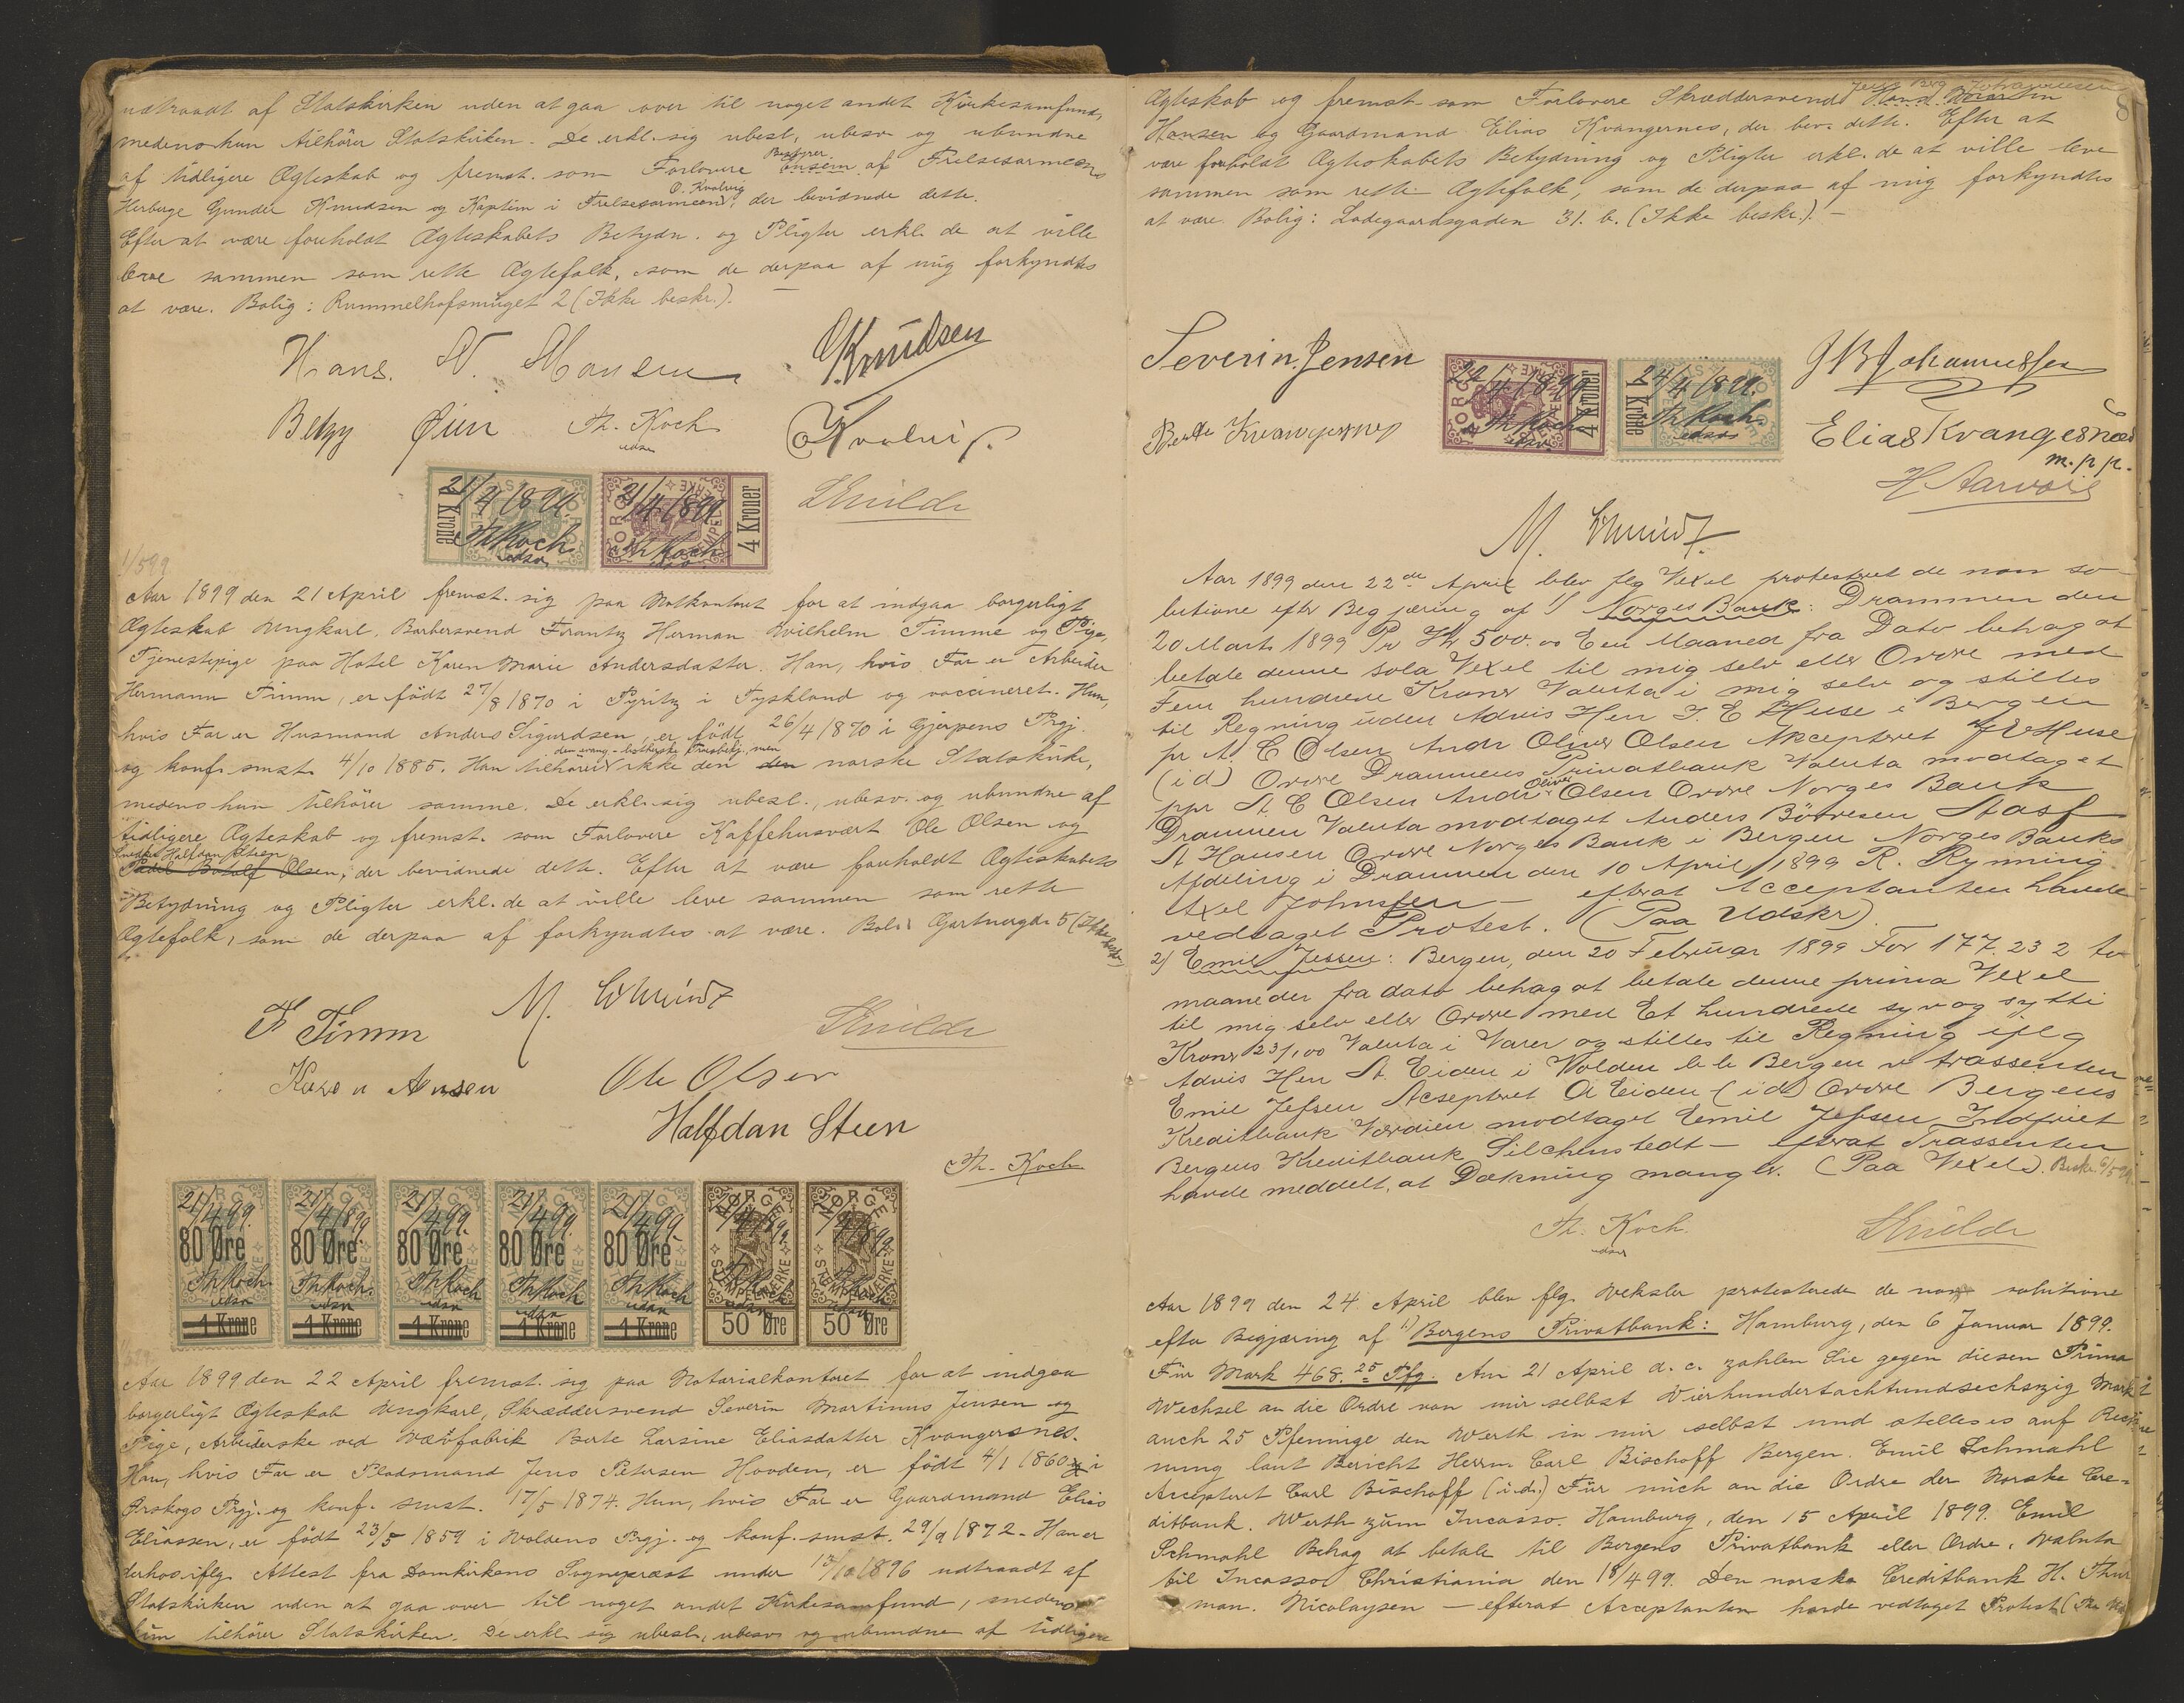 udtraadt af Statskirken uden at gaa over til noget andet Kirkesamfund,
medens hun tilhører Statskirken. De erkl. sig ubesl., ubesv. og ubundne
Bestyrer
af tidligere Ægteskab og fremst. som Forlovere af Frelsesarmeens
O. Kvalvig
Herberge Gunder Knudsen og Kaptein i Frelsesarmeen, der bevidnede dette.
Efter at være foreholdt Ægteskabets Betydn. og Pligter erkl. de at ville
leve sammen som rette Ægtefolk, som de derpaa af mig forkyndtes
at være. Bolig: Rummelhofsmuget 2 (Ikke beskr.). —
Hans. N. Monsen
G. Knudsen
Betzy Øien Th. Koch
udsn
O Kvalvig.
21/4 1899. Th Koch udsn 1 Krone
21/4 1899 Th Koch 4 Kroner
Aar 1899 den 21 April fremst. sig paa Notkontoret for at indgaa borgerligt
Ægteskab Ungkarl, Barbersvend Frantz Herman Wilhelm Timme og Pige,
Tjenestepige paa Hotel Karen Marie Andersdatter. Han, hvis Far er Arbeider
Hermann Timm, er født 27/8 1870 i Pyritz i Tyskland og vaccineret. Hun,
hvis Far er Husmand Anders Sigurdsen, er født 26/4 1870 i Gjerpens Prgj.
den evang-lutherske Troesbekj., men
og konf. smst. 4/10 1885. Han tilhører ikke den den norske Statskirke,
medens hun tilhører samme. De erkl. sig ubesl., ubesv. og ubundne af
tidligere Ægteskab og fremst. som Forlovere Kaffehusvært Ole Olsen og
Halfdan Steen
Olsen, der bevidnede dette. Efter at være foreholdt Ægteskabets
Betydning og Pligter erkl. de at ville leve sammen som rette
Ægtefolk, som de derpaa af forkyndtes at være. Bol. Gartnergd. 5 (Ikke beskr.)
F Timm
Karen Ansen
Ole Olsen
Halfdan Steen
Th. Koch
21/4 99. 80 Øre Th Koch. udsn 1 Krone
21/4 1899 80 Øre Th Koch. udsn 1 Krone
21/4 99. 80 Øre Th Koch udsn 1 Krone
21/4 99. 80 Øre Th Koch udsn 1 Krone
21/4 99. 80 Øre Th Koch udsn 1 Krone
NORGE STEMPELMERKE 50 Øre
NORGE STEMPELMERKE 50 Øre
Aar 1899 den 22 April fremst. sig paa Notarialkontoret for at indgaa
borgerligt Ægteskab Ungkarl, Skræddersvend Severin Martinus Jensen og
Pige, Arbeiderske ved Vævfabrik Berte Larsine Eliasdatter Kvangersnes.
Han, hvis Far er Pladsmand Jens Petersen Hovden, er født 4/1 1860 i
Ørskogs Prgj. og konf. smst. 17/5 1874. Hun, hvis Far er Gaardmand Elias
Eliassen, er født 23/5 1859 i Voldens Prgj. og konf. smst. 29/9 1872. Han er
derhos iflg. Attest fra Domkirkens Sognepræst under 13/10 1896 udtraadt af
Statskirken uden at gaa over til noget andet Kirkesamfund, medens
hun tilhører Statskirken. De erkl. sig ubesl., ubesv. og ubundne af tidligere
8
Johannessen
Ægteskab og fremst. som Forlovere Skræddersvend
Hansen og Gaardmand Elias Kvangernes, der bev. dette. Efter at
være foreholdt Ægteskabets Betydning og Pligter erkl. de at ville leve
sammen som rette Ægtefolk, som de derpaa af mig forkyndtes
at være. Bolig: Ladegaardsgaden 31. b. (Ikke beskr.). —
Severin. Jensen
Berte Kvangersnes
22/4 1899 Th Koch udsn. 4 Kroner
24/4 1899. Th Koch. udsn 1 Krone
J B Johannessen
Elias Kvangesnæs
m. p. p.
Aar 1899 den 22de April blev flg Vexel protesteret de non so-
lutione efter Begjæring af 1) Norges Bank: Drammen den
20 Marts 1899 Pr Kr 500.00 Een Maaned fra Dato behag at
betale denne sola Vexel til mig selv eller Ordre med
Fem hundrede Kroner Valuta i mig selv og stilles
til Regning uden Advis Herr J. E Huse i Bergen
pr A. C Olsen Andr Oliver Olsen Akcepteret J E Huse
(id) Ordre Drammens Privatbank Valuta modtaget
Oliver
ppr A C Olsen Andr Olsen Ordre Norges Bank
Drammen Valuta modtaget Anders Børresen
A Hansen Ordre Norges Bank i Bergen Norges Banks
Afdeling i Drammen den 10 April 1899 R. Rynning
Axel Johnsen — efterat Acceptanten havde
vedtaget Protest. (Paa Udskr).
2) Emil Jessen: Bergen, den 20 Februar 1899 For 177.23 2 to
maaneder fra dato behag at betale denne prima Vexel
til mig selv eller Ordre med Et hundrede syv og sytti
Kroner 23/100 Valuta i Varer og stilles til Regning iflg
Advis Herr A. Eiden i Volden b b Bergen v trassenten
Emil Jefsen Acsepteret A Eiden (id) Ordre Bergens
Kreditbank Værdien modtaget Emil Jefsen Indfriet
Bergens Kreditbank Silchenstedt — efterat Trassenten
havde meddelt, at Dækning mangler. (Paa Vexel).
Th. Koch.
udsn
Aar 1899 den 24. April blev flg. Veksler protesterede de non solutione
efter Begjæring af 1) Bergens Privatbank: Hamburg, den 6 Januar 1899.
Für Mark 468.25 Pfg. Am 21 April d. c. zahlen Sie gegen diesen Prima
Wechsel an die Ordre von mir selbst Vierhundertachtundsechszig Mark
auch 25 Pfennige den Werth in mir selbst und stellen es auf Rech-
nung laut Bericht Herrn Carl Bischoff Bergen. Emil Schmahl
Accepteret Carl Bischoff (i.d.) Für mich an die Ordre der Norske Cre-
ditbank. Werth zum Incasso. Hamburg, den 15 April 1899. Emil
Schmahl Behag at betale til Bergens Privatbank eller Ordre. Valuta
til Incasso. Christiania den 18/4 99. Den norske Creditbank H. Thur
man. Nicolaysen — efterat Acceptanten havde vedtaget Protest